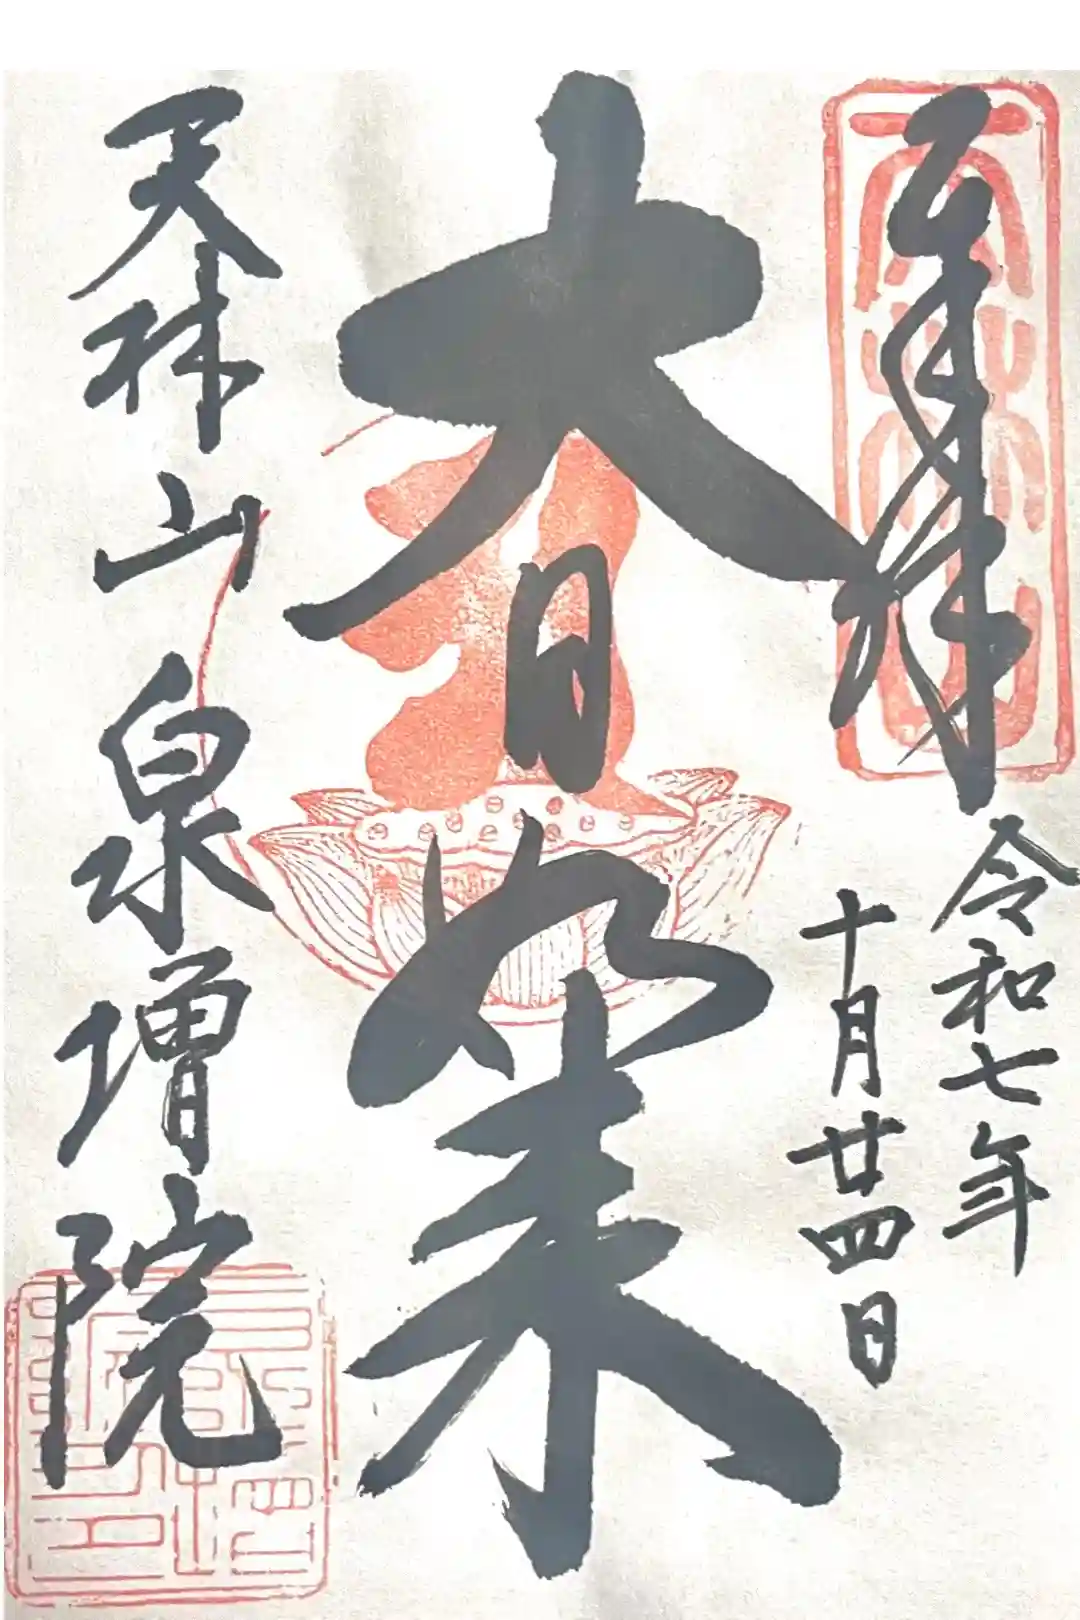 奉拝
令和七年
十月廿四日
大日如来
天林山泉増院
天林山